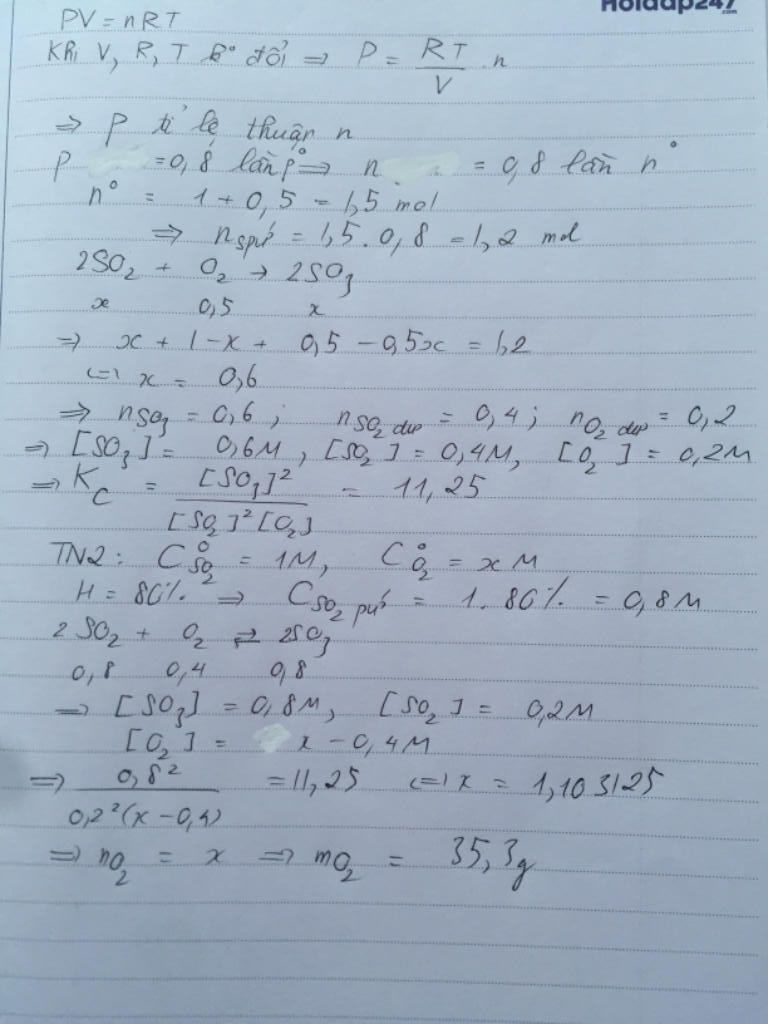 Hoidap247.com
PV = nRT
Khi V, R, T k° đổi => P = RT/V . n
=> P tỉ lệ thuận n
P = 0,8 lần p° => n = 0,8 lần n°
n° = 1 + 0,5 = 1,5 mol
=> n spứ = 1,5 . 0,8 = 1,2 mol
2SO2 + O2 -> 2SO3
x 0,5 x
=> x + 1 - x + 0,5 - 0,5x = 1,2
<=> x = 0,6
=> nSO3 = 0,6 ; nSO2 dư = 0,4 ; nO2 dư = 0,2
=> [SO3] = 0,6M , [SO2] = 0,4M, [O2] = 0,2M
=> KC = [SO3]²/[SO2]²[O2] = 11,25
TN2 : C°SO2 = 1M, C°O2 = x M
H = 80% => CSO2 pứ = 1.80% = 0,8M
2SO2 + O2 ⇌ 2SO3
0,8 0,4 0,8
=> [SO3] = 0,8M, [SO2] = 0,2M
[O2] = x - 0,4M
=> 0,8²/0,2²(x - 0,4) = 11,25 <=> x = 1,103125
=> nO2 = x => mO2 = 35,3g